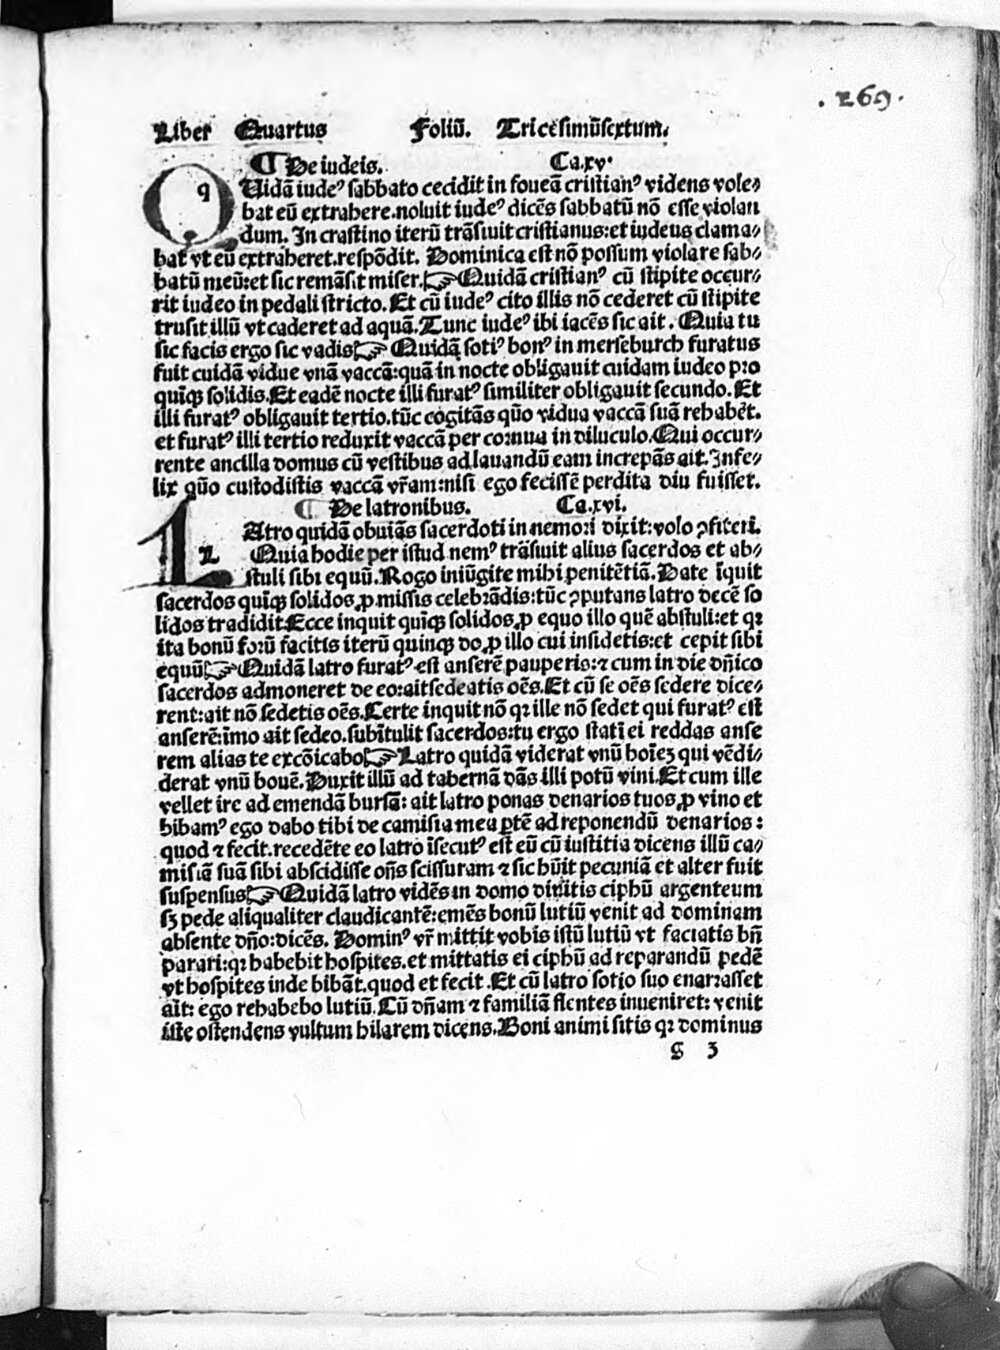 .169.
Liber Quartus Foliū. Tricesimūsextum.
¶ De iudeis. Ca.xv.
QUidā iudeꝰ sabbato cecidit in foueā cristianꝰ videns vole⸗
bat eū extrahere.noluit iudeꝰ dicēs sabbatū nō esse violan
dum. In crastino iterū trāsiuit cristianus:et iudeus clama⸗
bat vt eū extraheret.respōdit. Dominica est nō possum violare sab⸗
batū meū:et sic remāsit miser.☞Quidā cristianꝰ cū stipite occur⸗
rit iudeo in pedali stricto. Et cū iudeꝰ cito illis nō cederet cū stipite
trusit illū vt caderet ad aquā. Tunc iudeꝰ ibi iacēs sic ait. Quia tu
sic facis ergo sic vadis☞ Quidā sotiꝰ bonꝰ in merseburch furatus
fuit cuidā vidue vnā vaccā:quā in nocte obligauit cuidam iudeo pro
quīqꝫ solidis.Et eadē nocte illi furatꝰ similiter obligauit secundo. Et
illi furatꝰ obligauit tertio.tūc cogitās quō vidua vaccā suā rehabēt.
et furatꝰ illi tertio reduxit vaccā per cornua in diluculo.Qui occur⸗
rente ancilla domus cū vestibus ad lauandū eam increpās ait.Infe⸗
lix quō custodistis vaccā vr̄am:nisi ego fecissē perdita diu fuisset.
¶ De latronibus. Ca.xvi.
LAtro quidā obuiās sacerdoti in nemori dixit:volo ꝯfiteri.
Quia hodie per istud nemꝰ trāsiuit alius sacerdos et ab⸗
stuli sibi equū. Rogo iniūgite mihi penitētiā. Date īquit
sacerdos quīqꝫ solidos ꝓ missis celebrādis:tūc ꝯputans latro decē so
lidos tradidit.Ecce inquit quīqꝫ solidos ꝓ equo illo quē abstuli:et qꝛ
ita bonū forū facitis iterū quinqꝫ do ꝓ illo cui insidetis:et cepit sibi
equū☞Quidā latro furatꝰ est anserē pauperis:⁊ cum in die dn̄ico
sacerdos admoneret de eo:ait sedeatis oēs.Et cū se oēs sedere dice⸗
rent:ait nō sedetis oēs.Certe inquit nō qꝛ ille nō sedet qui furatꝰ est
anserē:īmo ait sedeo.subītulit sacerdos:tu ergo statī ei reddas anse
rem alias te excōicabo☞Latro quidā viderat vnū hoīeꝫ qui vēdi⸗
derat vnū bouē. Duxit illū ad tabernā dās illi potū vini.Et cum ille
vellet ire ad emendā bursā: ait latro ponas denarios tuos ꝓ vino et
bibamꝰ ego dabo tibi de camisia mea ꝑtē ad reponendū denarios:
quod ⁊ fecit.recedēte eo latro īsecutꝰ est eū cū iustitia dicens illū ca⸗
misiā suā sibi abscidisse on̄s scissuram ⁊ sic hūit pecuniā et alter fuit
suspensus☞Quidā latro vidēs in domo diuitis ciphū argenteum
sꝫ pede aliqualiter claudicantē:emēs bonū lutiū venit ad dominam
absente dn̄o:dicēs. Dominꝰ vr̄ mittit vobis istū lutiū vt faciatis bn̄
parari:qꝛ habebit hospites.et mittatis ei ciphū ad reparandū pedē
vt hospites inde bibāt.quod et fecit .Et cū latro sotio suo enarrasset
ait: ego rehabebo lutiū.Cū dn̄am ⁊ familiā flentes inueniret: venit
iste ostendens vultum hilarem dicens.Boni animi sitis qꝛ dominus
g 3